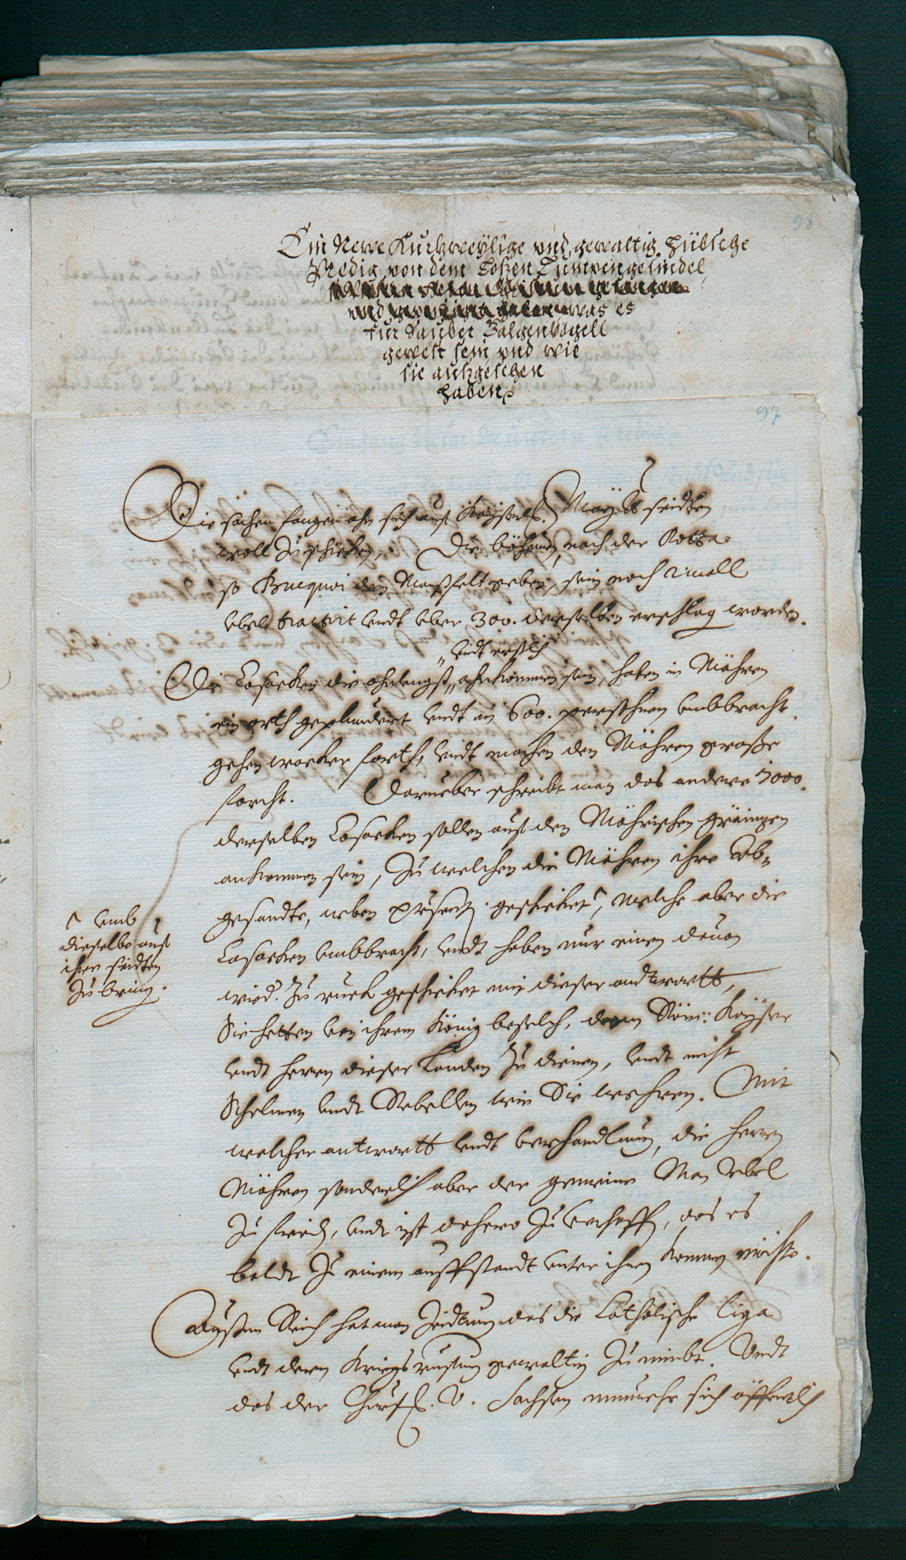 98
Ein Newe Kurtzweÿlige und gewaltig hübsche
Predig von dem Losen Lumpengesindel
was es
fur sauber Galgenvogell
gewest sein und wie
sie außgesehen
haben
97
Die sachen fangen ahn sich auf Kaÿserl. Maÿtt seidten
woll zuschicken. Die böhmen, nach der Rotta
so Bucquoi dem Manßfelt geben, sein noch 2 mall
ubel tractirt undt uber 300. derselben erschlag worden.
undt endtlich
Die Cosacken die ahnlengst ahnkommen sein, haben in Mähren
ein orth geplundert undt in 600. persohnen umbbracht.
gehen wacker forth, undt machen den Mähren große
forcht. Darueber schreibt man das andere 7000.
derselben Cosacken sollen auf den Mährischen gräinzen
ankommen sein, zu welchen die Mähren ihre Ab-
gesandte, neben präsent. geschicket, welche aber die
Cosacken umbbracht, undt haben nur einen davon
wied. zu ruck geschicket mit dieser andtwortt,
Sie hetten von ihrem König befelch, dem Röm: Kaÿser
undt herrn dieser Landen zu dienen, undt nicht
Schelmen undt Rebellen wie Sie wehren. Mit
welcher antwortt undt verhandlung, die herrn
Mähren sonderlich aber der gemeine Man ubel
zu fried, undt ist dahero zu verhoffen, das es
baldt zu einem auffstandt unter ihnen kommen möchte.
^ umb
dieselbe auf
ihre seidten
zu bring.
Außm Reich hat man Zeidtung das die Catholische liga
undt deren Kriegs rustung gewaltig zu nimbt. Undt
das der Churf. v. Sachsen nunmehr sich öffentlich